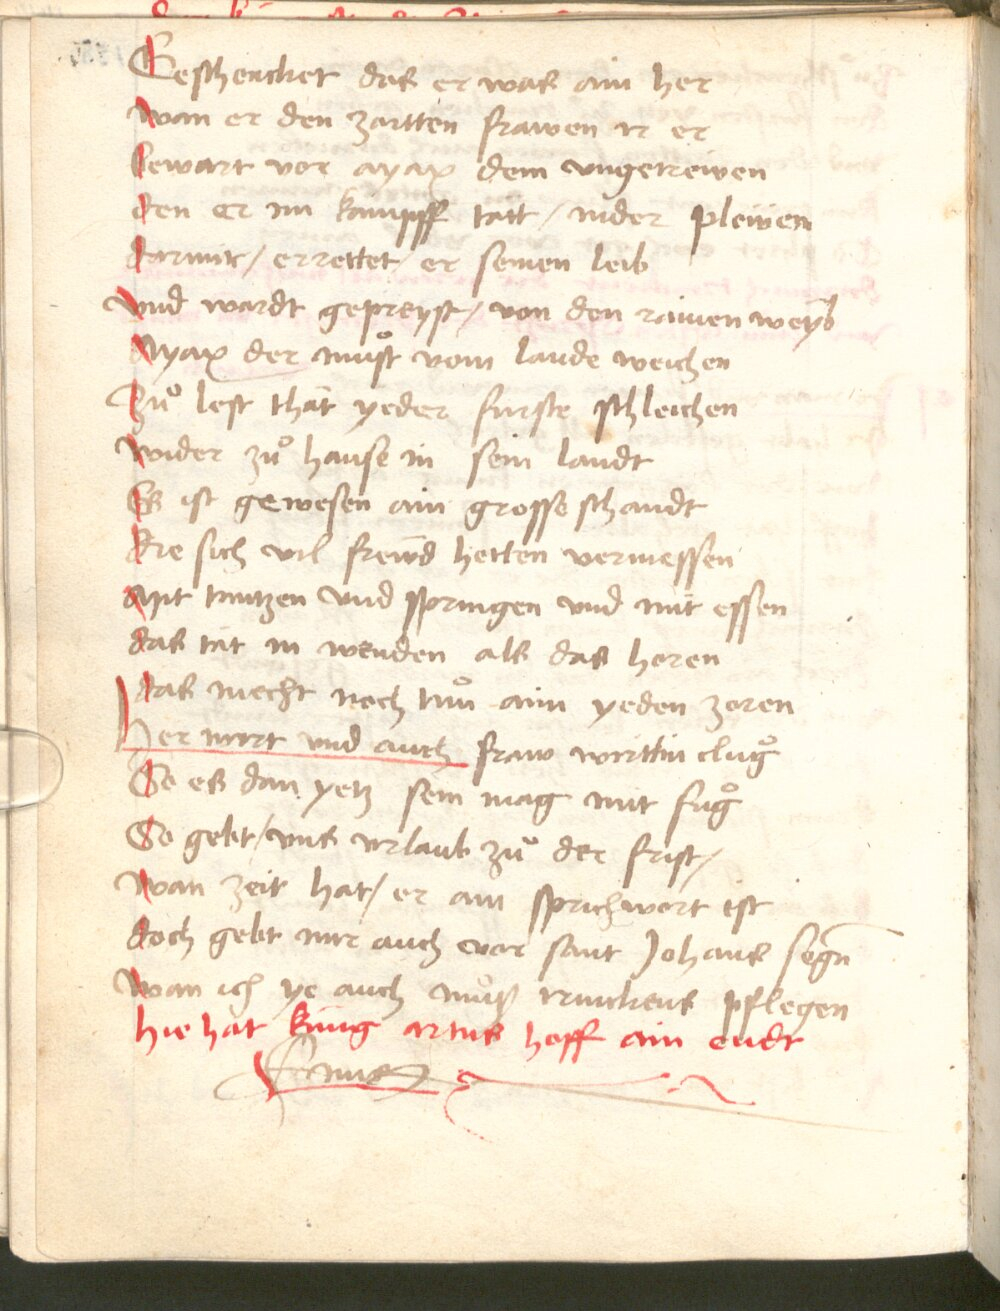 Geschencket das er was ain her
wan er den zartten frawen ir er
bewart vor ayax dem vngetrewen
den er im kampff tatt / nider plewen
darmit / errettet / er seinen leib
vnd wardt gepreyst / von den rainen weyb
Ayax der muͦst vom lande weichen
Zuͦ lest thät yeder furste schleichen
wider zuͦ hause in sein landt
Es ist gewesen ain grosse schandt
die sich vil frewd hetten vermessen
Mit tantzen vnd springen vnd mit essen
das tät in wenden als das horen
das mecht noch tuͦn aim yeden zoren
Her wirt vnd auch fraw wirttin cluͦg
So es dan yetz sein mag mit fuͦg
So gebt / vns vrlaub zuͦ der frist /
wan zeit hat / er ain sprichwort ist
doch gebt mir auch vor sant Johans segn
wan ich ye auch muͦß trinckens pflegen
hie hat kunig artus hoff ain endt
Finis